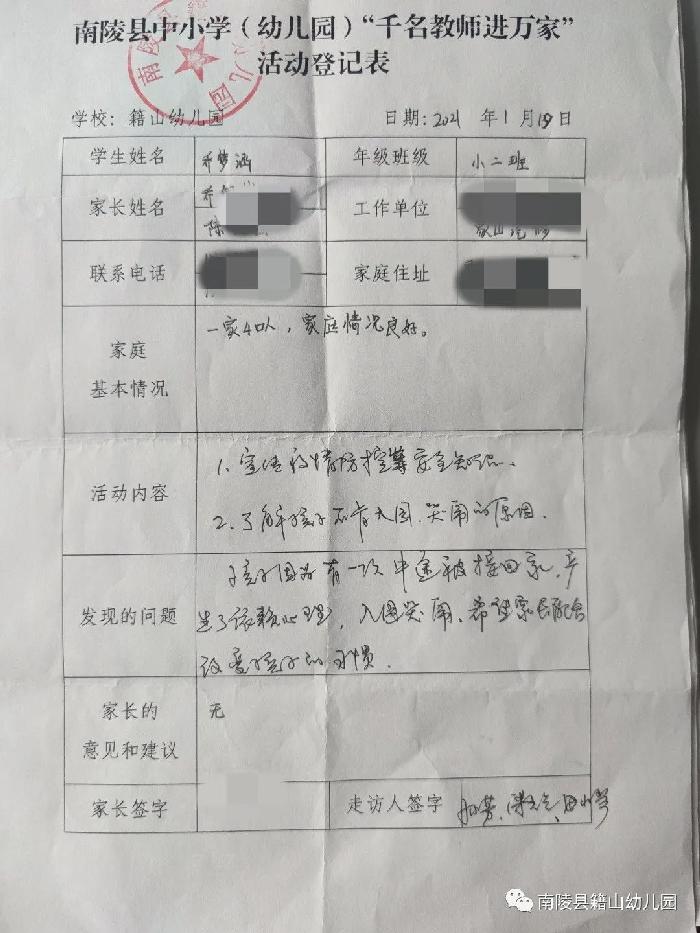 南陵县中小学（幼儿园）“千名教师进万家”
活动登记表
学校：籍山幼儿园 日期：2021 年 1 月 19 日
学生姓名 梦涵 年级班级 小二班
家长姓名 工作单位
联系电话 家庭住址
家庭
基本情况
一家4口人，家庭情况良好。
活动内容
1.宣传疫情防控等安全知识。
2.了解孩子不肯入园、哭闹的原因.
发现的问题
孩子因为有一次中途被接回家，产
生了依赖心理，入园哭闹、希望家长配合
改变孩子的习惯.
家长的
意见和建议
无
家长签字 走访人签字
南陵县籍山幼儿园